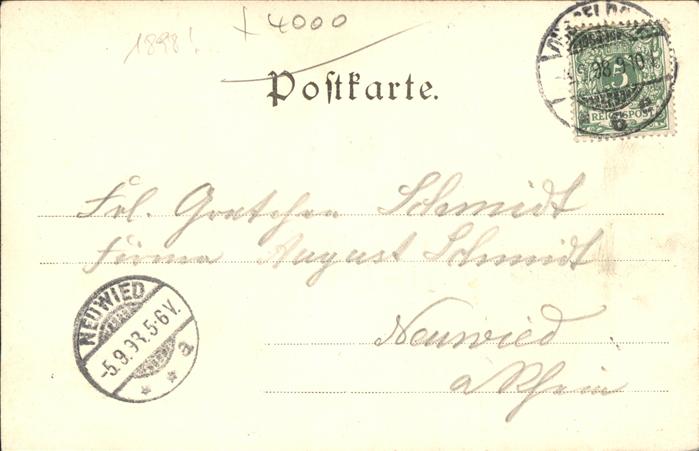 1898!
+ 4000
Postkarte.
5
REICHSPOST
.9.98.9-10
Frl. Gretchen Schmidt
Firma August Schmidt
Neuwied
a Rhein
NEUWIED
-5.9.98.5-6V.
* * a